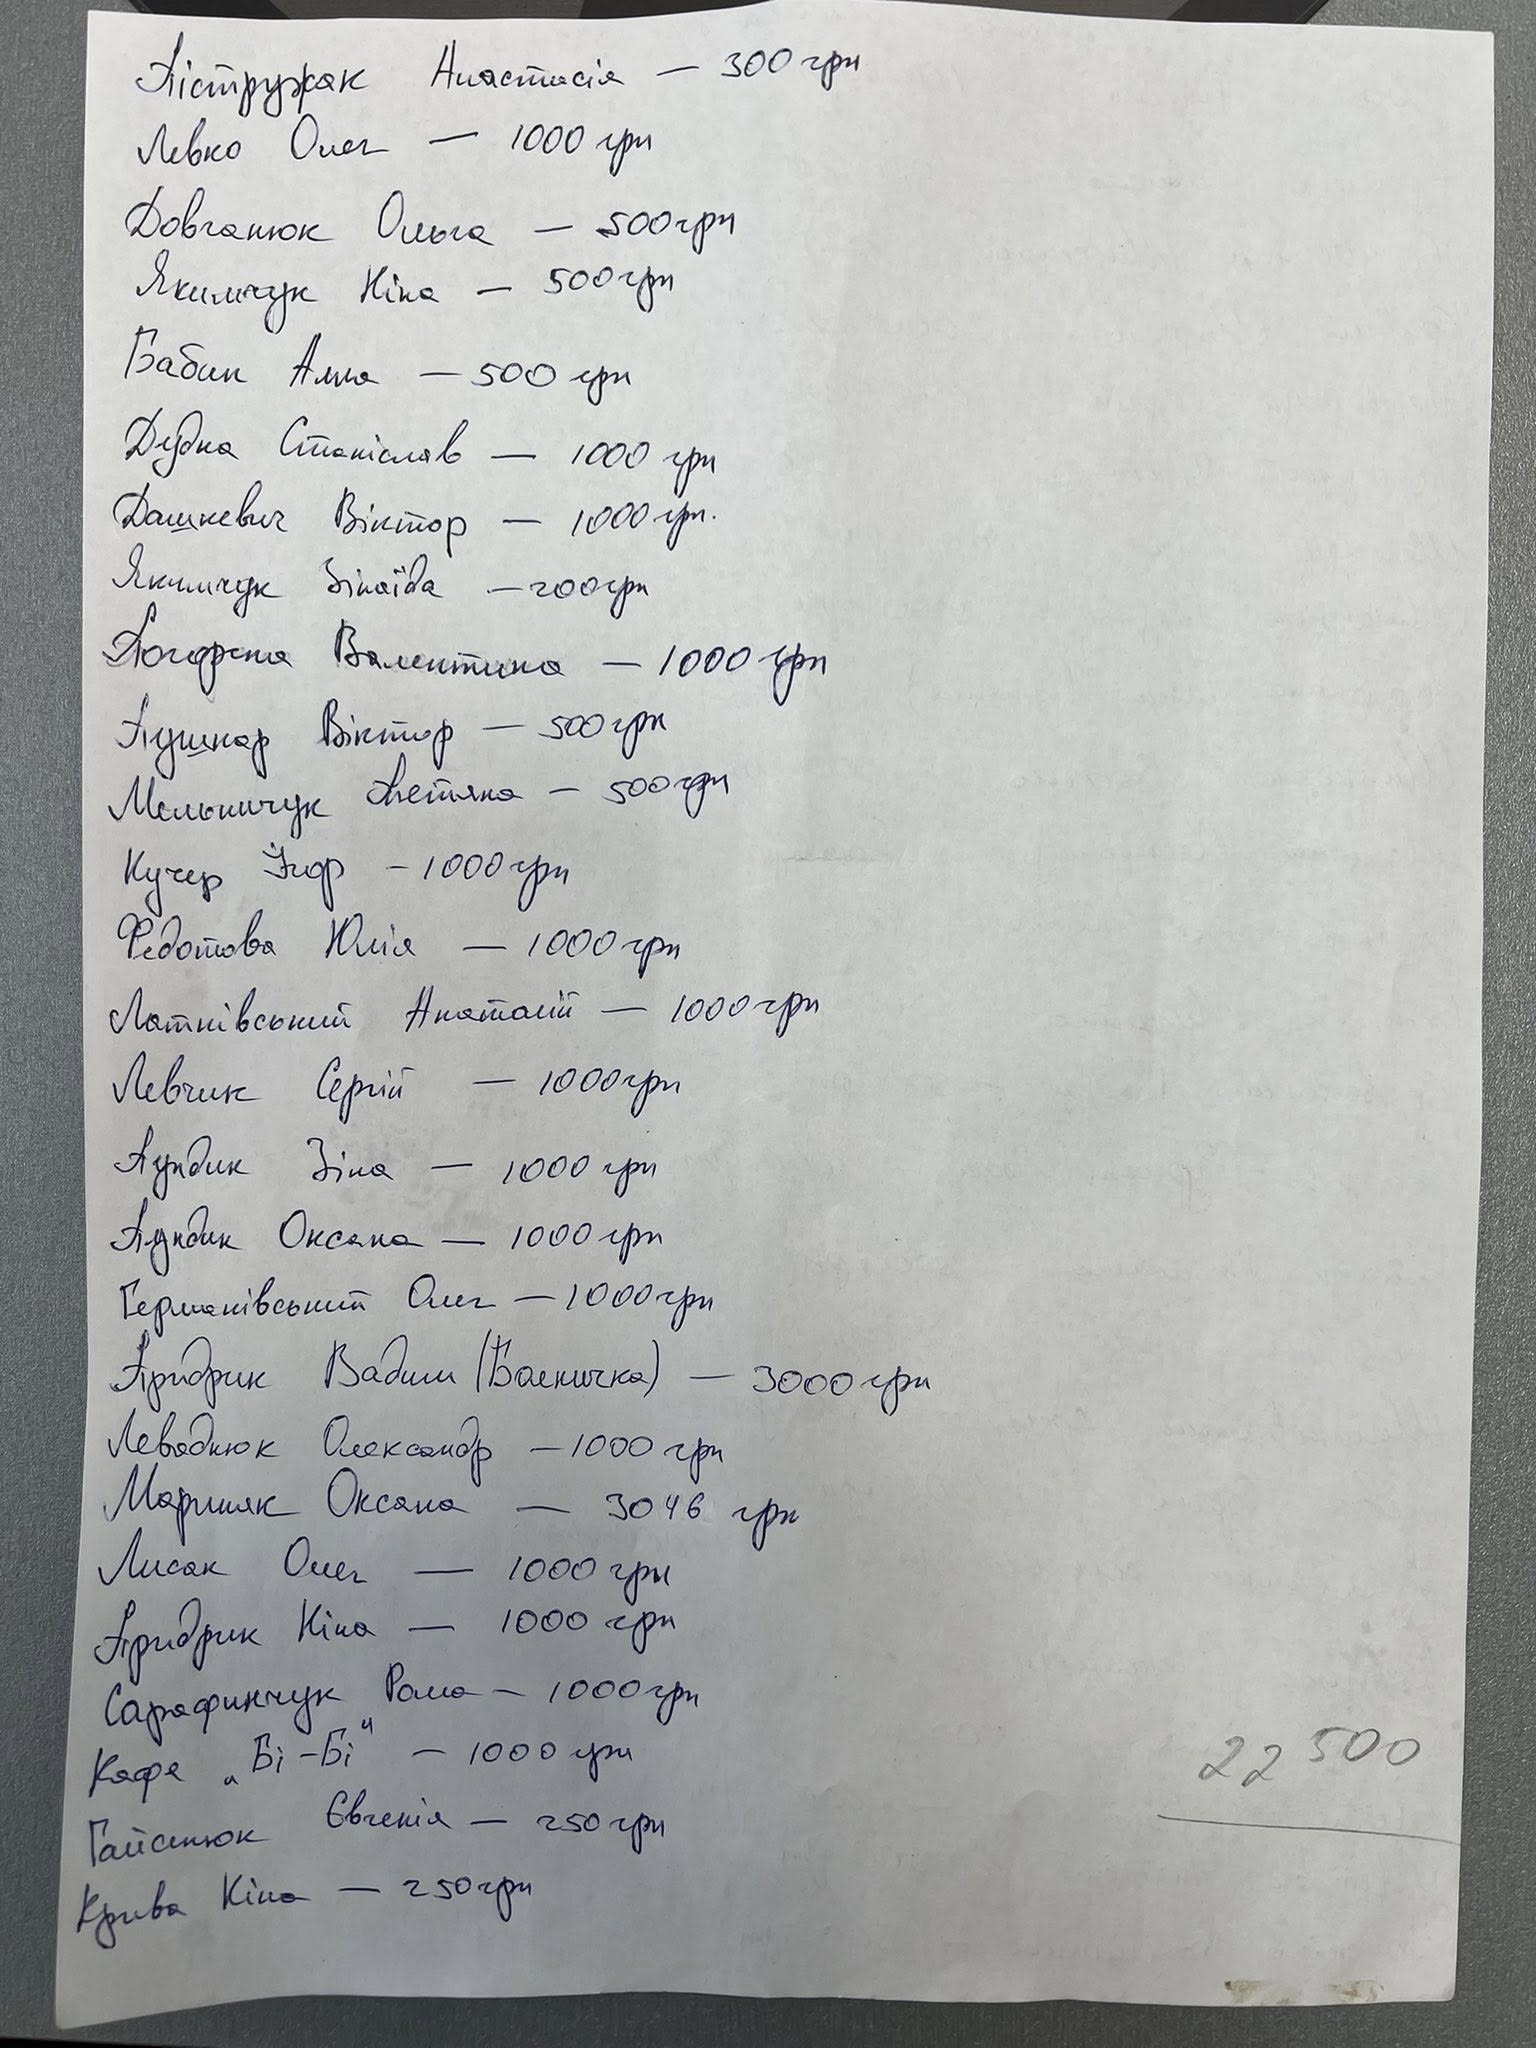 Пістружак Анастасія — 300 грн
Левко Олег — 1000 грн
Довганюк Ольга — 500 грн
Якимчук Ніна — 500 грн
Бабик Алла — 500 грн
Дудка Станіслав — 1000 грн
Дашкевич Віктор — 1000 грн.
Якимчук Зінаїда — 200 грн
Погорєла Валентина — 1000 грн
Пушкар Віктор — 500 грн
Мельничук Светяна — 500 грн
Кучер Ігор - 1000 грн
Федотова Юлія — 1000 грн
Латківський Анатолій — 1000 грн
Левчик Сергій — 1000 грн
Пундик Зіна — 1000 грн
Пундик Оксана — 1000 грн
Германівський Олег — 1000 грн
Придрик Вадим (Болничка) — 3000 грн
Леваднюк Олександр — 1000 грн
Мариняк Оксана — 3046 грн
Лисак Олег — 1000 грн
Придрик Ніна — 1000 грн
Сарафинчук Рома — 1000 грн
Кафе „Бі-Бі" — 1000 грн
22 500
Гайсенюк Євгенія — 250 грн
Крива Ніна — 250 грн